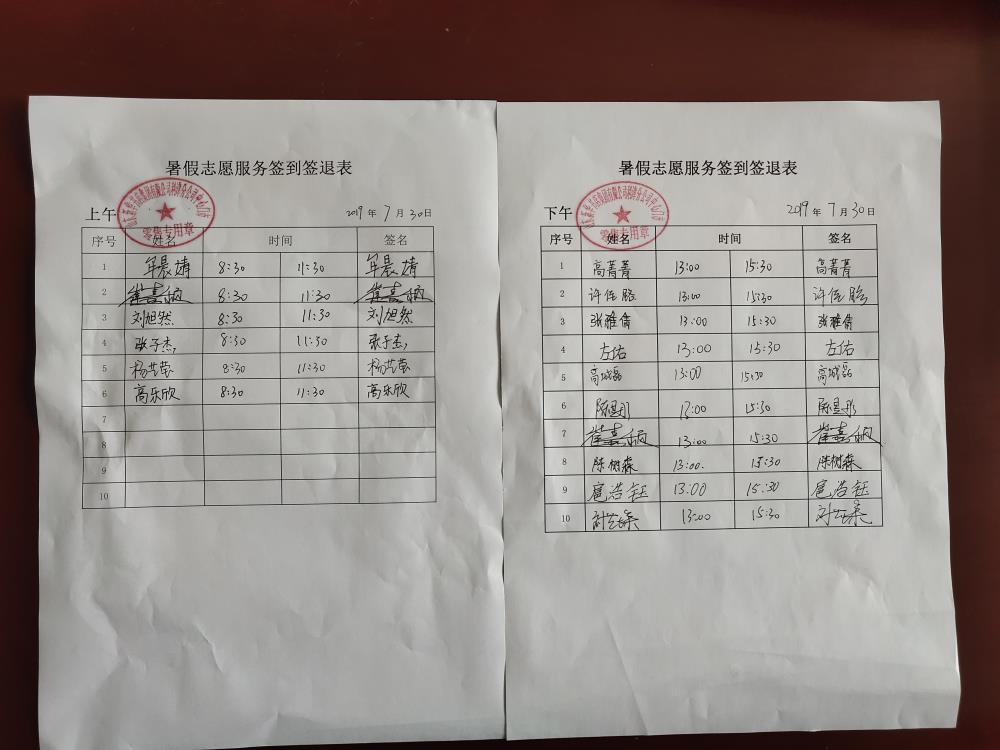 暑假志愿服务签到签退表
上午 2019 年 7 月 30 日
序号 姓名 时间 签名
1 牟晨靖 8:30 11:30 牟晨靖
2 8:30 11:30
3 刘旭然 8:30 11:30 刘旭然
4 张子杰 8:30 11:30 张子杰
5 杨芷莹 8:30 11:30 杨芷莹
6 高乐欣 8:30 11:30 高乐欣
7
8
9
10
零售专用章
暑假志愿服务签到签退表
下午 2019 年 7 月 30 日
序号 姓名 时间 签名
1 高菁菁 13:00 15:30 高菁菁
2 13:00 15:30
3 张雅倩 13:00 15:30 张雅倩
4 左佑 13:00 15:30 左佑
5 高城磊 13:00 15:30 高城磊
6 陈昱彤 13:00 15:30 陈昱彤
7 13:00 15:30
8 陈树森 13:00. 15:30 陈树森
9 扈浩钰 13:00 15:30 扈浩钰
10 13:00 15:30
零售专用章